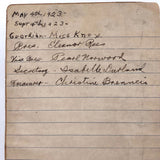 May 4th, 1923-
Sept 4th, 1923-
Guardian - Miss Knox
Pres. Eleanor Rees
Vice Pres. Pearl Norwood
Secretary Isabelle
Christine